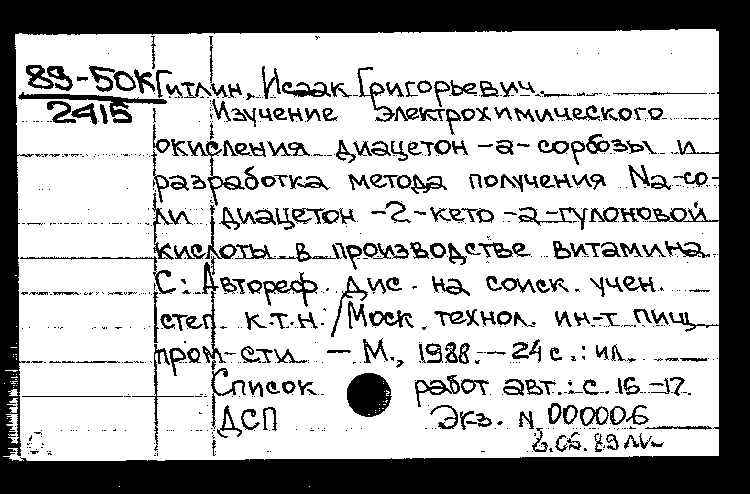 89-50К Гитлин, Исаак Григорьевич.
2415 Изучение электрохимического
окисления диацетон-а-сорбозы и
разработка метода получения Na-со-
ли диацетон-2-кето-а-гулоновой
кислоты в производстве витамина
С: Автореф. дис. на соиск. учен.
степ. к.т.н. /Моск. технол. ин-т пищ
пром-сти — М., 1988.—24 с.: ил.
Список работ авт.: с. 16-17
ДСП Экз. N 000006
2.06.89